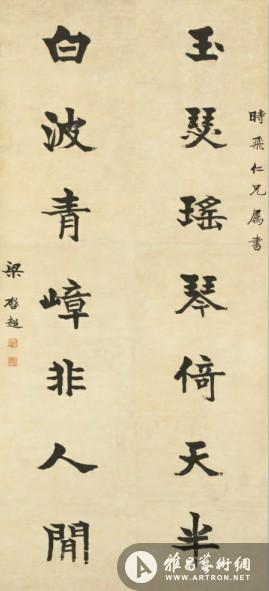 時飛仁兄屬書
玉瑟瑤琴倚天半
白波青嶂非人間
梁啓超
雅昌藝術網
WWW.ARTRON.NET